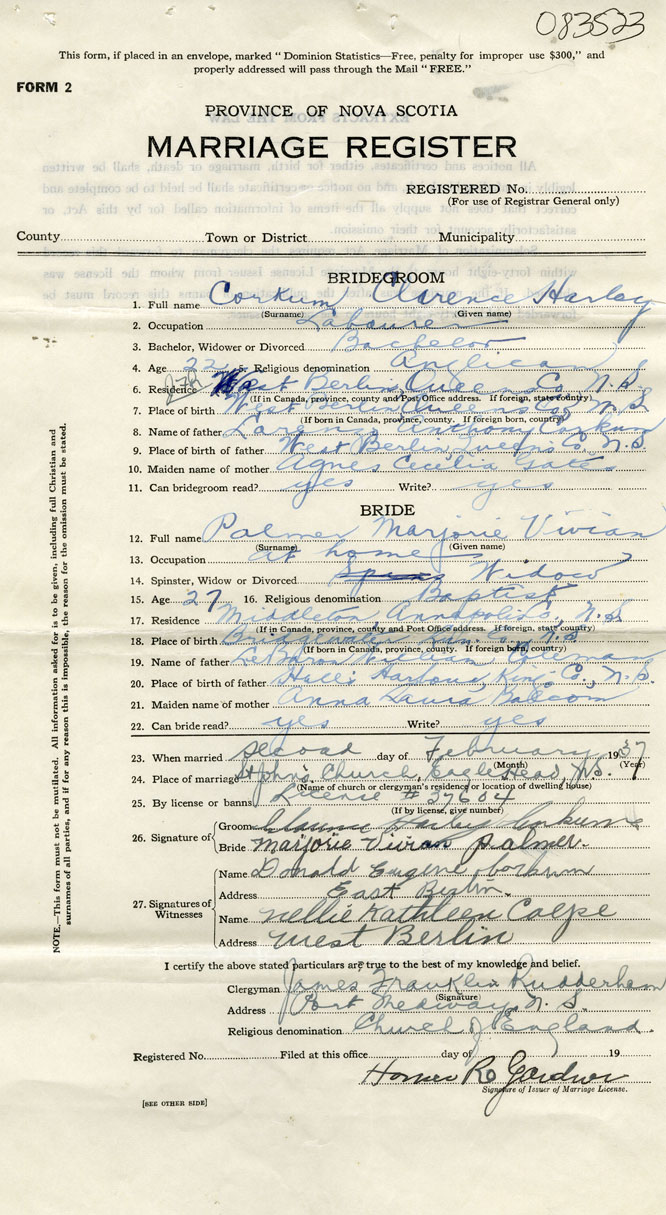 083523
This form, if placed in an envelope, marked "Dominion Statistics—Free, penalty for improper use $300," and
properly addressed will pass through the Mail "FREE."
FORM 2
PROVINCE OF NOVA SCOTIA
MARRIAGE REGISTER
REGISTERED No.
(For use of Registrar General only)
County Town or District Municipality
BRIDEGROOM
1. Full name Corkum Clarence Harley
(Surname) (Given name)
2. Occupation Labourer
3. Bachelor, Widower or Divorced Bachelor
4. Age 22 5. Religious denomination Anglican
6. Residence East Berlin, Queens Co, N.S
(If in Canada, province, county and Post Office address. If foreign, state country)
7. Place of birth West Berlin Queens Co, N.S.
(If born in Canada, province, county. If foreign born, country)
8. Name of father Corkum
9. Place of birth of father West Berlin Queens Co. N.S
10. Maiden name of mother Agnes Cecilia Gates
11. Can bridegroom read? yes Write? yes
BRIDE
12. Full name Palmer Marjorie Vivian
(Surname) (Given name)
13. Occupation at home
14. Spinster, Widow or Divorced Widow
15. Age 27 16. Religious denomination Baptist
17. Residence Middleton Annapolis, N.S
(If in Canada, province, county and Post Office address. If foreign, state country)
18. Place of birth Bridgewater N.S
(If born in Canada, province, county. If foreign born, country)
19. Name of father LeBaron William
20. Place of birth of father Halls Harbour, Kings Co., N.S.
21. Maiden name of mother Anna Laura Balcom
22. Can bride read? yes Write? yes
23. When married second day of February 1937
(Month) (Year)
24. Place of marriage St John's Church, Eagle Head, N.S.
(Name of church or clergyman's residence or location of dwelling house)
25. By license or banns License # 37604
(If by license, give number)
26. Signature of Groom Clarence Harley Corkum
Bride Marjorie Vivian Palmer.
27. Signatures of Witnesses Name Donald Eugene Corkum
Address East Berlin.
Name Nellie Kathleen Colpe
Address West Berlin
I certify the above stated particulars are true to the best of my knowledge and belief.
Clergyman James Franklin Rudderham
(Signature)
Address Port Medway, N.S.
Religious denomination Church of England.
Registered No. Filed at this office day of 19
Homer R. Gardner
Signature of Issuer of Marriage License.
[SEE OTHER SIDE]
NOTE.—This form must not be mutilated. All information asked for is to be given, including full Christian and
surnames of all parties, and if for any reason this is impossible, the reason for the omission must be stated.